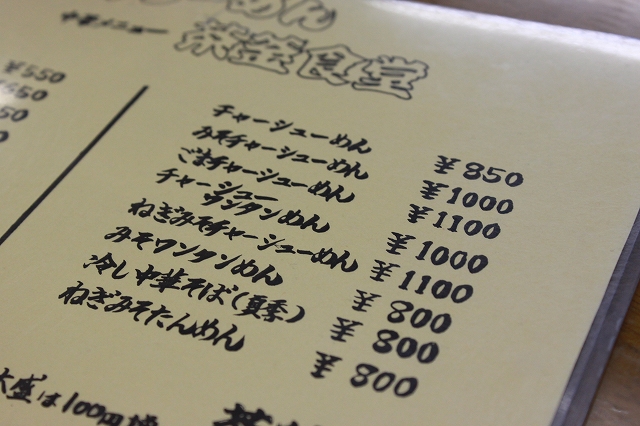 らーめん
中華メニュー
茶釜食堂
¥550
¥650
50
0
チャーシューめん ¥850
みそチャーシューめん ¥1000
ごまチャーシューめん ¥1100
チャーシューワンタンめん ¥1000
ねぎみそチャーシューめん ¥1100
みそワンタンめん ¥800
冷し中華そば(夏季) ¥800
ねぎみそたんめん ¥800
大盛は100円増